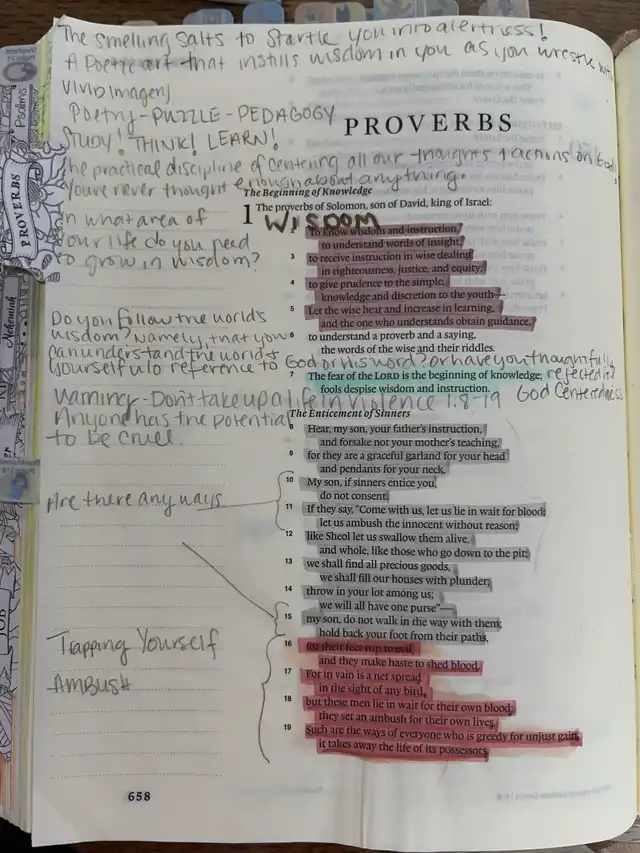 The smelling salts to startle you into alertness!
A Poetic art that instills wisdom in you as you wrestle with
Vivid Imagery
Poetry-PUZZLE-PEDAGOGY
STUDY! THINK! LEARN!
PROVERBS
the practical discipline of centering all our thoughts & actions on God.
You're never thought enough about anything.
The Beginning of Knowledge
1 The proverbs of Solomon, son of David, king of Israel:
In what area of
your life do you need
to grow in wisdom?
WISDOM
To know wisdom and instruction,
to understand words of insight,
3 to receive instruction in wise dealing,
in righteousness, justice, and equity;
4 to give prudence to the simple,
knowledge and discretion to the youth—
5 Let the wise hear and increase in learning,
and the one who understands obtain guidance,
6 to understand a proverb and a saying,
the words of the wise and their riddles.
Do you follow the world's
wisdom? Namely, that you
can understand the world &
yourself w/o reference to God or his word? or have you thoughtfully
rejected it?
7 The fear of the LORD is the beginning of knowledge;
fools despise wisdom and instruction.
God Centeredness
Warning-Don't take up a life in violence 1:8-19
Anyone has the potential
to be cruel.
The Enticement of Sinners
8 Hear, my son, your father's instruction,
and forsake not your mother's teaching,
9 for they are a graceful garland for your head
and pendants for your neck.
10 My son, if sinners entice you,
do not consent.
Are there any ways
11 If they say, "Come with us, let us lie in wait for blood;
let us ambush the innocent without reason;
12 like Sheol let us swallow them alive,
and whole, like those who go down to the pit;
13 we shall find all precious goods,
we shall fill our houses with plunder;
14 throw in your lot among us;
we will all have one purse"—
15 my son, do not walk in the way with them;
hold back your foot from their paths,
16 for their feet run to evil,
and they make haste to shed blood.
17 For in vain is a net spread
in the sight of any bird,
18 but these men lie in wait for their own blood;
they set an ambush for their own lives.
19 Such are the ways of everyone who is greedy for unjust gain;
it takes away the life of its possessors.
Trapping Yourself
AMBUSH
658
Psalms
PROVERBS
Nehemiah
JOB